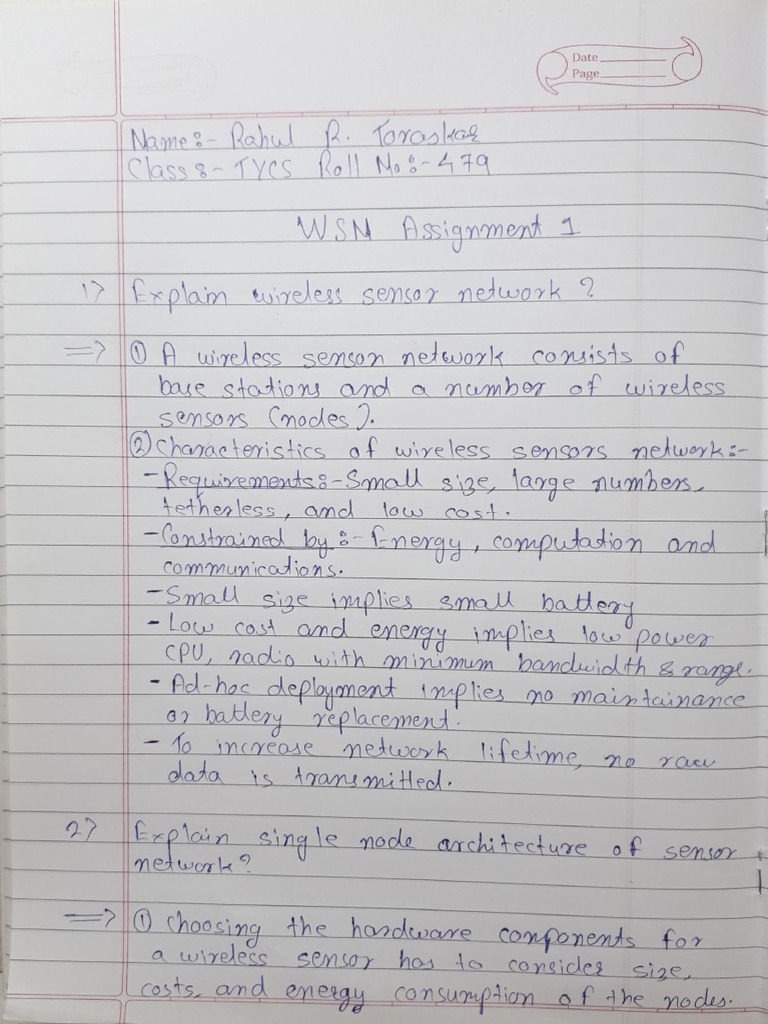 Date
Page
Name:- Rahul R. Toraskar
Class:- TYCS Roll No:- 479
WSN Assignment 1
1> Explain wireless sensor network ?
=> ① A wireless sensor network consists of
base stations and a number of wireless
sensors (nodes).
② Characteristics of wireless sensors network:-
- Requirements:- Small size, large numbers,
tetherless, and low cost.
- Constrained by :- Energy, computation and
communications.
- Small size implies small battery
- Low cost and energy implies low power
CPU, radio with minimum bandwidth & range.
- Ad-hoc deployment implies no maintainance
or battery replacement.
- To increase network lifetime, no raw
data is transmitted.
2> Explain single node architecture of sensor
network?
=> ① Choosing the hardware components for
a wireless sensor has to consider size,
costs, and energy consumption of the nodes.